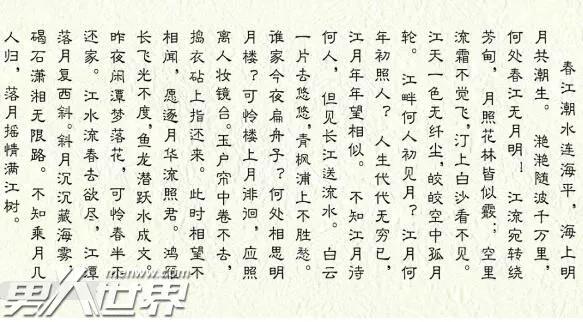 春江潮水连海平，海上明
月共潮生。 滟滟随波千万里，
何处春江无月明！ 江流宛转绕
芳甸，月照花林皆似霰；空里
流霜不觉飞，汀上白沙看不见。
江天一色无纤尘，皎皎空中孤月
轮。 江畔何人初见月？江月何
年初照人？ 人生代代无穷已，
江月年年望相似。 不知江月诗
何人， 但见长江送流水。 白云
一片去悠悠，青枫浦上不胜愁。
谁家今夜扁舟子？何处相思明
月楼？可怜楼上月徘徊，应照
离人妆镜台。玉户帘中卷不去，
捣衣砧上指还来。此时相望不
相闻，愿逐月华流照君。鸿雁
长飞光不度，鱼龙潜跃水成文。
昨夜闲潭梦落花，可怜春半不
还家。江水流春去欲尽，江潭
落月复西斜。斜月沉沉藏海雾，
碣石潇湘无限路。不知乘月几
人归，落月摇情满江树。
男人世界